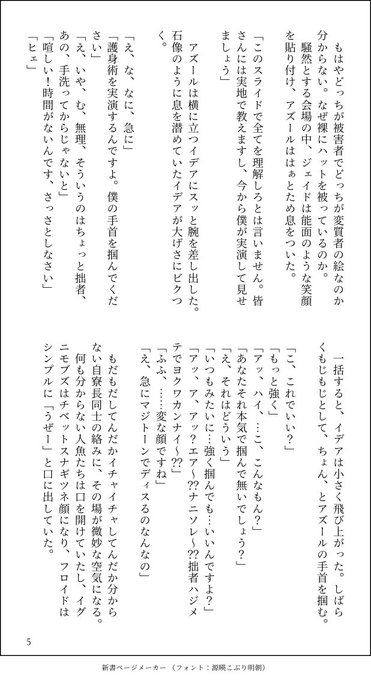 もはやどっちが被害者でどっちが変質者の絵なのか
分からない。なぜ裸にハットを被っているのか。
騒然とする会場の中、ジェイドは能面のような笑顔
を貼り付け、アズールははぁとため息をついた。
「このスライドで全てを理解しろとは言いません。皆
さんには実地で教えますし、今から僕が実演して見せ
ましょう」
アズールは横に立つイデアにスッと腕を差し出した。
石像のように息を潜めていたイデアが大げさにビクつ
く。
「え、な、なに、急に」
「護身術を実演するんですよ。僕の手首を掴んでくだ
さい」
「え、いや、む、無理、そういうのはちょっと拙者、
あの、手洗ってからじゃないと」
「喧しい！時間がないんです、さっさとしなさい」
「ヒェ」
一括すると、イデアは小さく飛び上がった。しばら
くもじもじとして、ちょん、とアズールの手首を掴む。
「こ、これでいい？」
「もっと強く」
「アッ、ハイ、…こ、こんなもん？」
「あなたそれ本気で掴んで無いでしょう？」
「え、それはどういう」
「いつもみたいに…強く掴んでも…いいんですよ？」
「アッ、ア、アッ？エア～⁇ナニソレ～⁇拙者ハジメ
テでヨクワカンナイ～⁇」
「ふふ、……変な顔ですね」
「え、急にマジトーンでディスるのなんなの」
もだもだしてんだかイチャイチャしてんだか分から
ない自寮長同士の絡みに、その場が微妙な空気になる。
何も分からない人魚たちは口を開けていたし、イグ
ニモブズはチベットスナギツネ顔になり、フロイドは
シンプルに「うぜー」と口に出していた。
5
新書ページメーカー（フォント：源暎こぶり明朝）